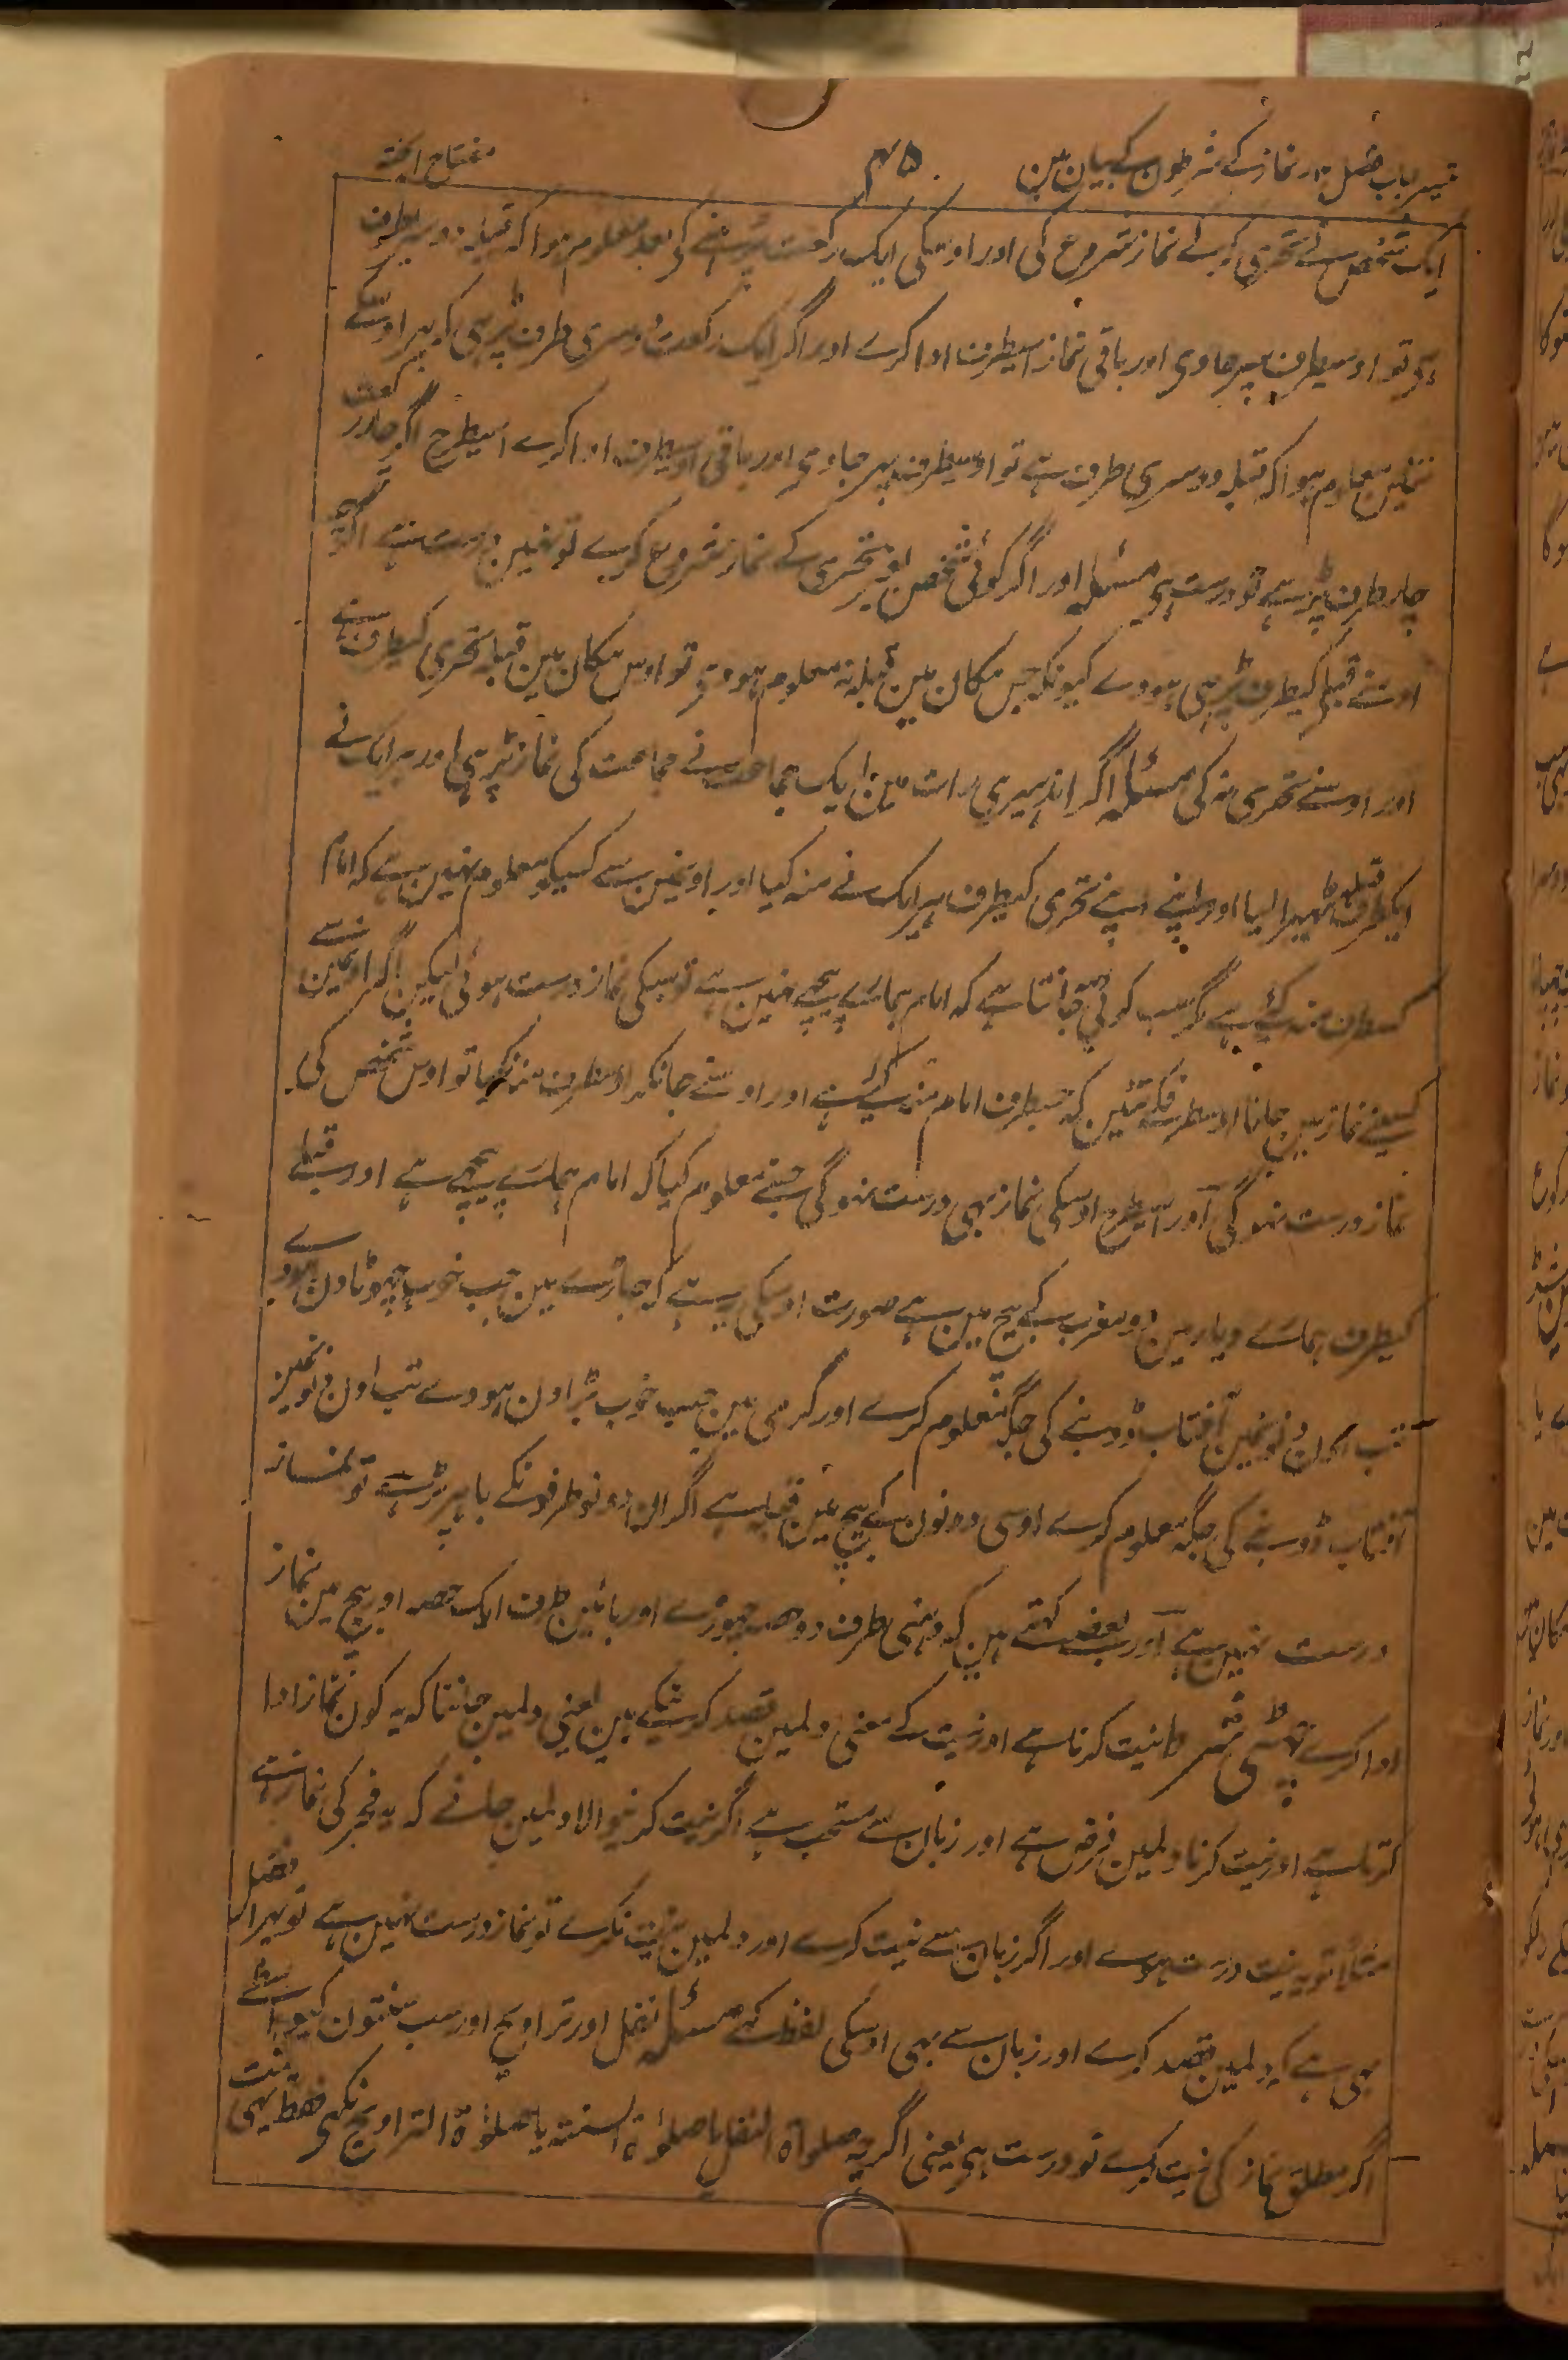 تیسرا باب فصل ۳ نماز کے شرطون کے بیان مین
۴۵
مفتاح الجنة
ایک شخص نے تحری کر کے نماز شروع کی اور اوسکی ایک رکعت پڑہنے کی بعد معلوم ہوا کہ قبلہ دوسریطرف
ہی تو اوسیطرف پہر جاوی اور باقی نماز اسیطرف ادا کرے اور اگر ایک رکعت دوسری طرف پڑہی کہ پہر اوسکے
تئین معلوم ہوا کہ قبلہ دوسری طرف ہے تو اوسیطرف پہر جاوی اور باقی اوسیطرف ادا کرے اسیطرح اگر چار رکعت
چار طرف پڑہے تو درست ہی مسئلہ اور اگر کوئی شخص بغیر تحری کے نماز شروع کرے تو نہین درست ہے اگرچہ
اوسنے قبلہ کیطرف پڑہی ہووے کیونکہ جس مکان مین قبلہ نہ معلوم ہووی تو اوس مکان مین قبلہ تحری کیطرف ہے
اور اوسنے تحری نہ کی مسئلہ اگر اندہیری رات مین ایک جماعت نے جماعت کی نماز پڑہی اور ہر ایک نے
ایکطرف قبلہ ٹھہرا لیا اور اپنے اپنے تحری کیطرف ہر ایک نے منہ کیا اور اونمین سے کسیکو معلوم نہین ہے کہ امام
کسطرف منہ کئے ہے مگر سب کوئی جانتا ہے کہ امام ہمارے پیچھے نہین ہے تو سبکی نماز درست ہوئی لیکن اگر اونمین سے
کسینے نماز مین جانا اوسطرفکے تئین کہ جسطرف امام منہ کئے ہے اور اوسنے جانکر اوسطرف منہ نکیا تو اوس شخص کی
نماز درست نہوگی اور اسیطرح اوسکی نماز بہی درست نہوگی جسنے معلوم کیا کہ امام ہمارے پیچھے ہے اور قبلے
کیطرف ہمارے دیار مین دو مغرب کے بیچ مین ہے صورت اوسکی یہ ہے کہ جاڑے مین جب خوب چھوٹا دن ہووے
تب اون دنونمین آفتاب ڈوبنے کی جگہ معلوم کرے اور گرمی مین جب خوب بڑا دن ہووے تب اون دنونمین
آفتاب ڈوبنے کی جگہ معلوم کرے اوسی دونون کے بیچ مین قبلہ ہے اگر ان دونو طرفونکے باہر پڑہے تو نماز
درست نہین ہے اور بعضے کہتے ہین کہ دہنی طرف دو حصہ چھوڑے اور بائین طرف ایک حصہ اور بیچ مین نماز
ادا کرے چھٹی شرط نیت کرنا ہے اور نیت کے معنی دلمین قصد کرنیکے ہین یعنی دلمین جاننا کہ یہ کون نماز ادا
کرتا ہے اور نیت کرنا دلمین فرض ہے اور زبان سے مستحب ہے اگر نیت کرنیوالا دلمین جانے کہ یہ فجر کی نماز ہے
مثلاً تو یہ نیت درست ہوے اور اگر زبان سے نیت کرے اور دلمین نیت نکرے تو نماز درست نہین ہے تو بہتر افضل
یہی ہے کہ دلمین قصد کرے اور زبان سے بہی اوسکی لفظ کہے مسئلہ نفل اور تراویح اور سب سنتون کیواسطے
اگر مطلق نماز کی نیت کرے تو درست ہی یعنی اگر یہ صلوٰة النفل یا صلوٰة السنة یا صلوٰة التراویح نکہی فقط یہی نیت